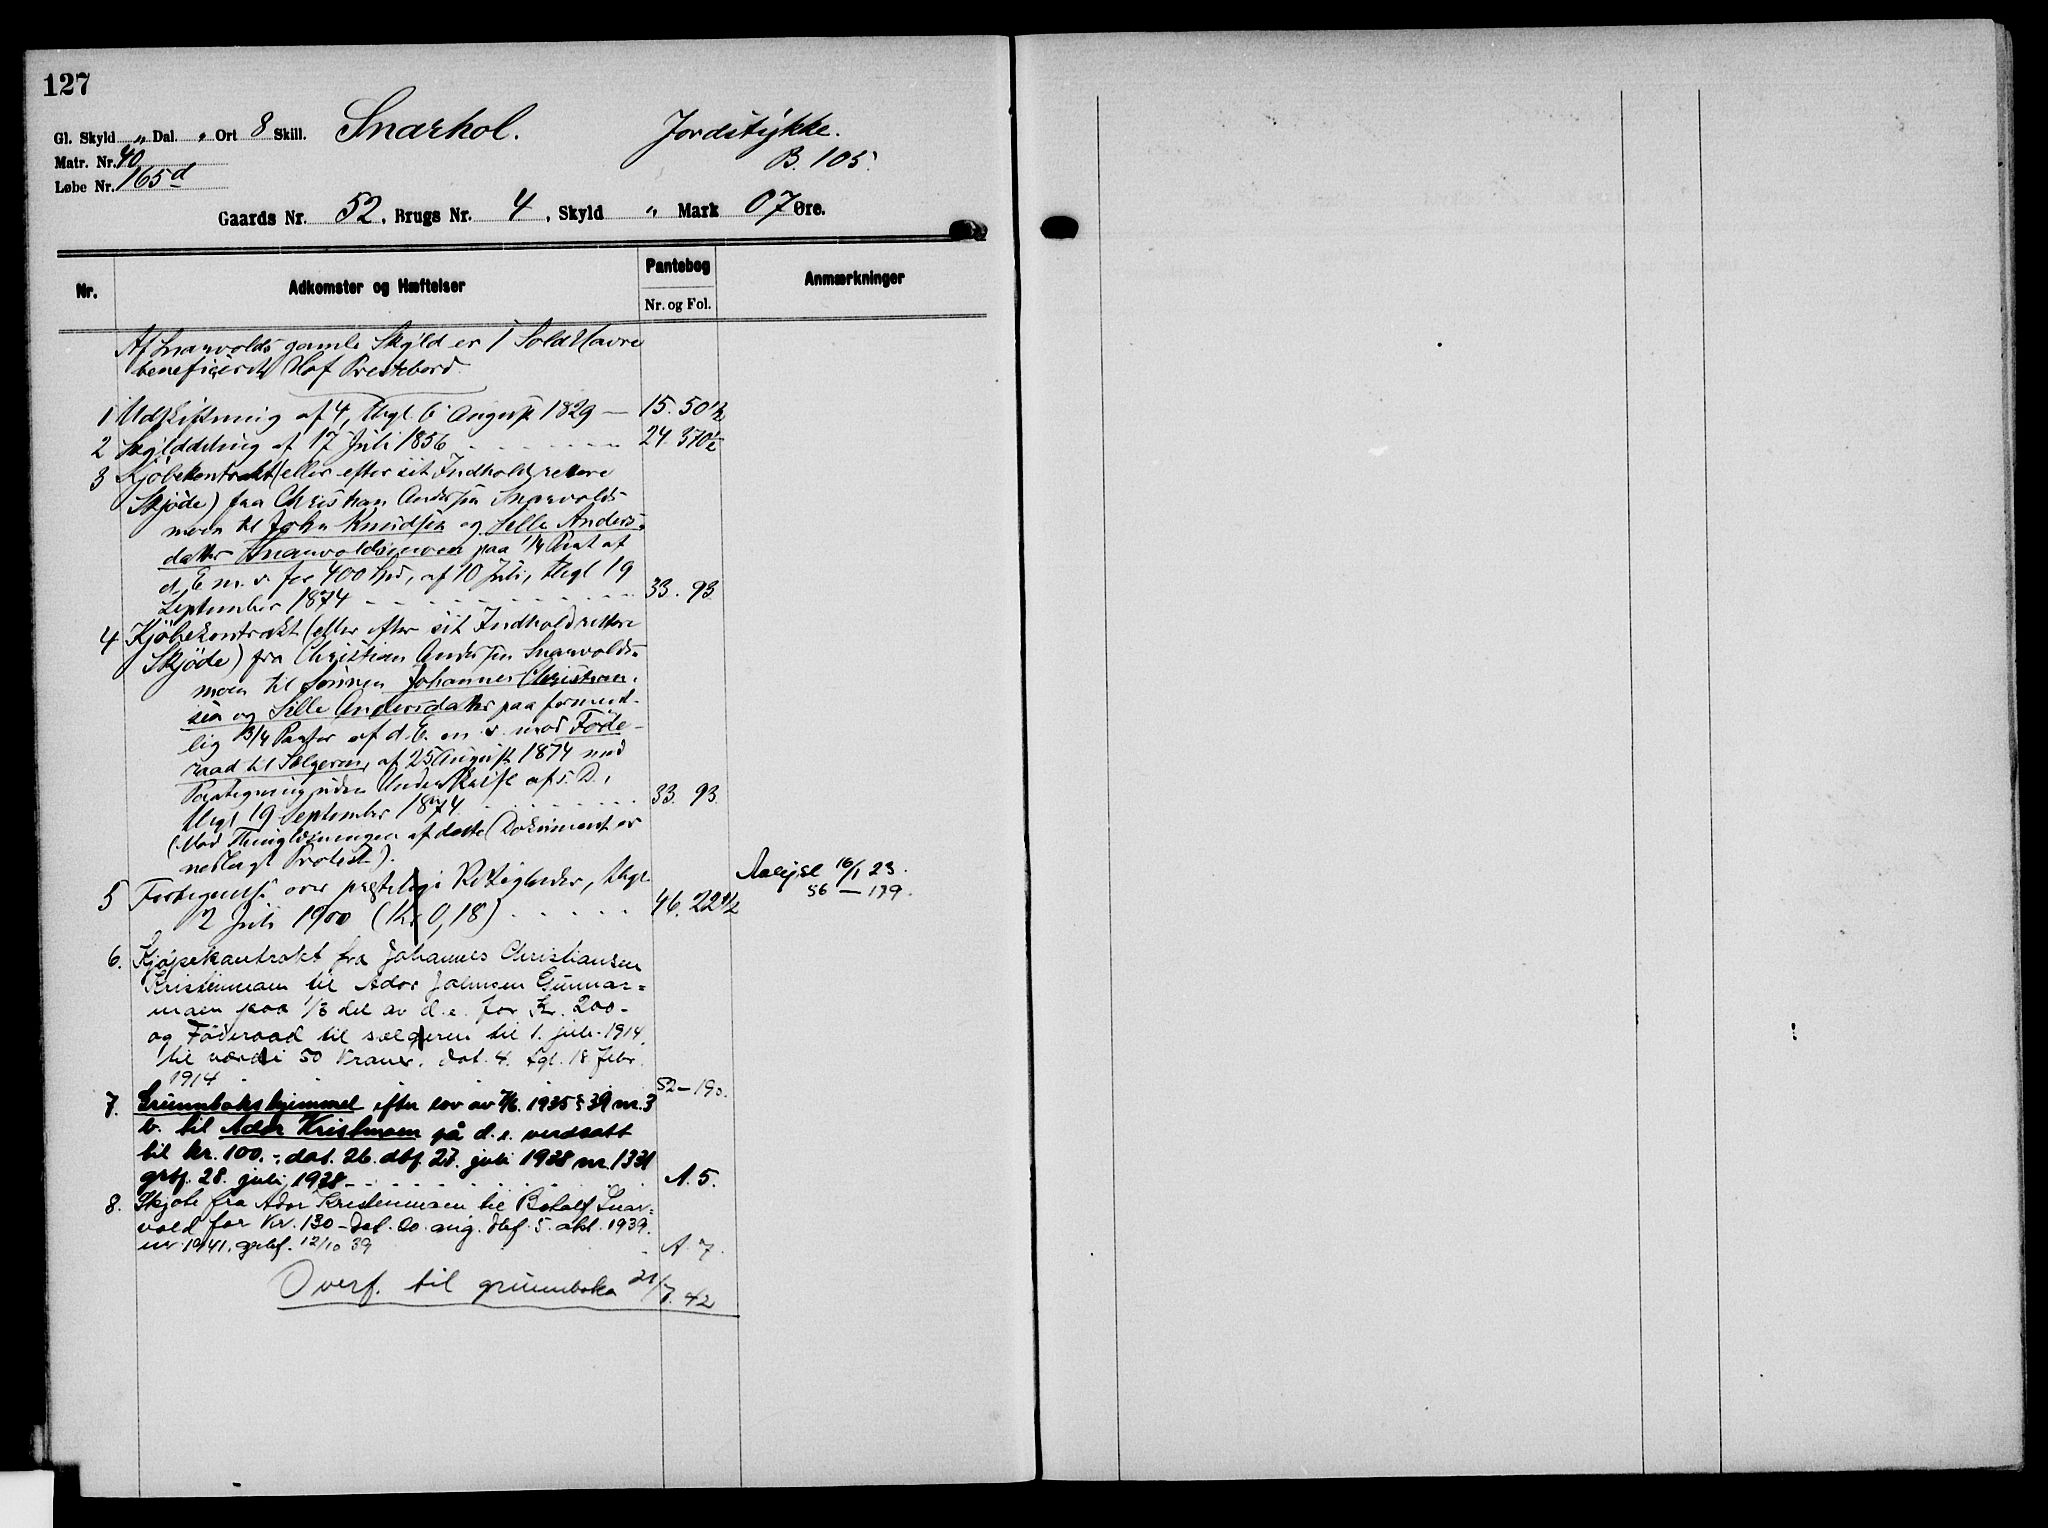 127
Gl. Skyld „ Dal. „ Ort 8 Skill. Snarhol. Jordstykke.
Matr. Nr. 40 B. 105.
Løbe Nr. 165d
Gaards Nr. 52, Brugs Nr. 4, Skyld „ Mark 07 Øre.
Nr. Adkomster og Hæftelser Pantebog Nr. og Fol. Anmærkninger
Af Snarvolds gamle Skyld er 1 Sold Havre
beneficeret Hof Prestebord.
1 Udskiftning af 4, thgl. 6 August 1829 — 15. 50 1/2
2 Skylddeling af 17 Juli 1856 24. 370 1/2
3 Kjöbekontrakt (eller efter sit Indhold rettere
Skjöde) fra Christian Andersen Snarvolds-
moen til John Knudsen og Sille Anders-
datter Snarvoldsmoen paa 1/4 Part af
d. E. m. v. for 400 Spd, af 10 Juli, thgl 19
September 1874 33. 93
4 Kjöbekontrakt (eller efter sit Indhold rettere
Skjöde) fra Christian Andersen Snarvolds-
moen til Sönnen Johannes Christian-
sen og Sille Andersdatter paa forment-
lig 3/4 Parter af d. E. m. v. mod Föde-
raad til Sælgeren, af 25 August 1874 med
Paategning uden Underskrift af s. D.,
thgl 19 September 1874. 33. 93.
(Mod Thinglæsningen af dette Dokument er
nedlagt Protest).
5 Fortegnelse over prestelige Rettigheder, thgl.
2 Juli 1900 (Kr 0,18) 46. 22 1/2 Aflyst 16/1 23.
56 — 139.
6. Kjøpekontrakt fra Johannes Christiansen
Kristenmoen til Ador Johnsen Gunnar-
moen paa 1/3 del av d. e. for Kr. 200-
og Föderaad til sælgeren til 1. juli 1914.
til værdi 50 Kroner. dat. 4. tgl. 18 febr.
1914 52 — 190.
7. Grunnbokshjemmel efter lov av 7/6. 1935 § 39 nr. 3
b. til Ador Kristmoen på d. e. verdsatt
til kr. 100.-, dat. 26. dbf. 27. juli 1938 nr. 1331
grbf. 28. juli 1938 A. 5.
8. Skjøte fra Ador Kristenmoen til Botolf Snar-
vold for Kr. 130 - Dat. 20. aug. dbf. 5. okt. 1939.
nr. 1941, grbf. 12/10 39 A. 7.
Overf. til grunnboka 21/7. 42